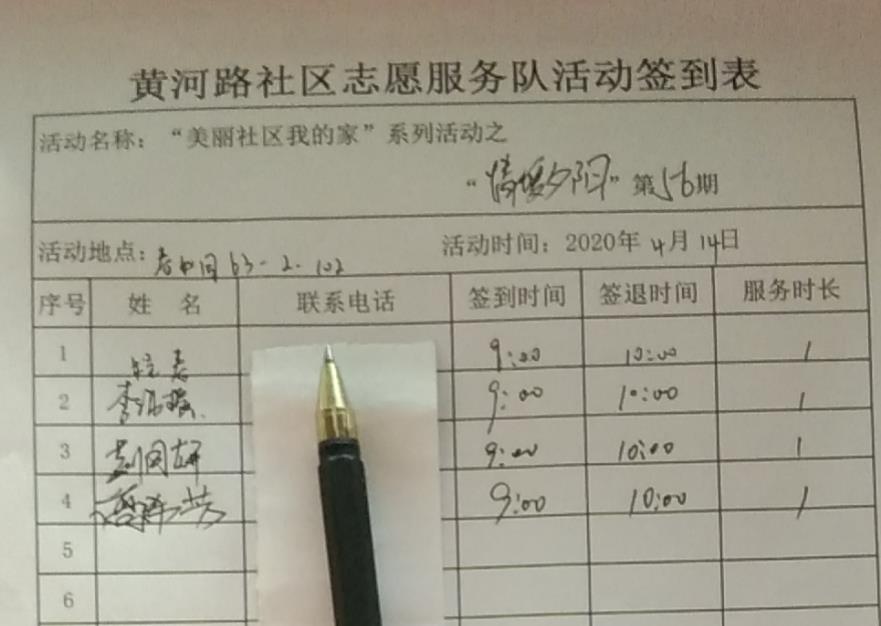 黄河路社区志愿服务队活动签到表
活动名称：“美丽社区我的家”系列活动之
“情暖夕阳”第56期
活动地点： 63-2-102 活动时间：2020年4月14日
序号 姓 名 联系电话 签到时间 签退时间 服务时长
1 9:00 10:00 1
2 9:00 10:00 1
3 9:00 10:00 1
4 9:00 10:00 1
5
6